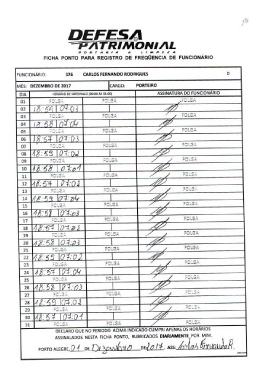 DEFESA
PATRIMONIAL
PORTARIA E LIMPEZA
FICHA PONTO PARA REGISTRO DE FREQUÊNCIA DE FUNCIONÁRIO
FUNCIONÁRIO: 126 CARLOS FERNANDO RODRIGUES 0
MÊS: DEZEMBRO DE 2017 CARGO: PORTEIRO
DIA ASSINATURA DO FUNCIONÁRIO
01 FOLGA FOLGA FOLGA
02 18:59 07:03
03 FOLGA FOLGA FOLGA
04 18:58 07:04
05 FOLGA FOLGA FOLGA
06 18:57 07:03
07 FOLGA FOLGA FOLGA
08 18:59 07:02
09 FOLGA FOLGA FOLGA
10 18:58 07:01
11 FOLGA FOLGA FOLGA
12 18:57 07:02
13 FOLGA FOLGA FOLGA
14 18:59 07:04
15 FOLGA FOLGA FOLGA
16 18:58 07:03
17 FOLGA FOLGA FOLGA
18 18:57 07:02
19 FOLGA FOLGA FOLGA
20 18:58 07:03
21 FOLGA FOLGA FOLGA
22 18:59 07:02
23 FOLGA FOLGA FOLGA
24 18:57 07:04
25 FOLGA FOLGA FOLGA
26 18:58 07:03
27 FOLGA FOLGA FOLGA
28 18:59 07:02
29 FOLGA FOLGA FOLGA
30 18:57 07:01
31 FOLGA FOLGA FOLGA
DECLARO QUE NO PERÍODO ACIMA INDICADO CUMPRI APENAS OS HORÁRIOS
ASSINALADOS NESTA FICHA PONTO, RUBRICADOS DIARIAMENTE POR MIM.
PORTO ALEGRE, 01 DE Dezembro DE 2017